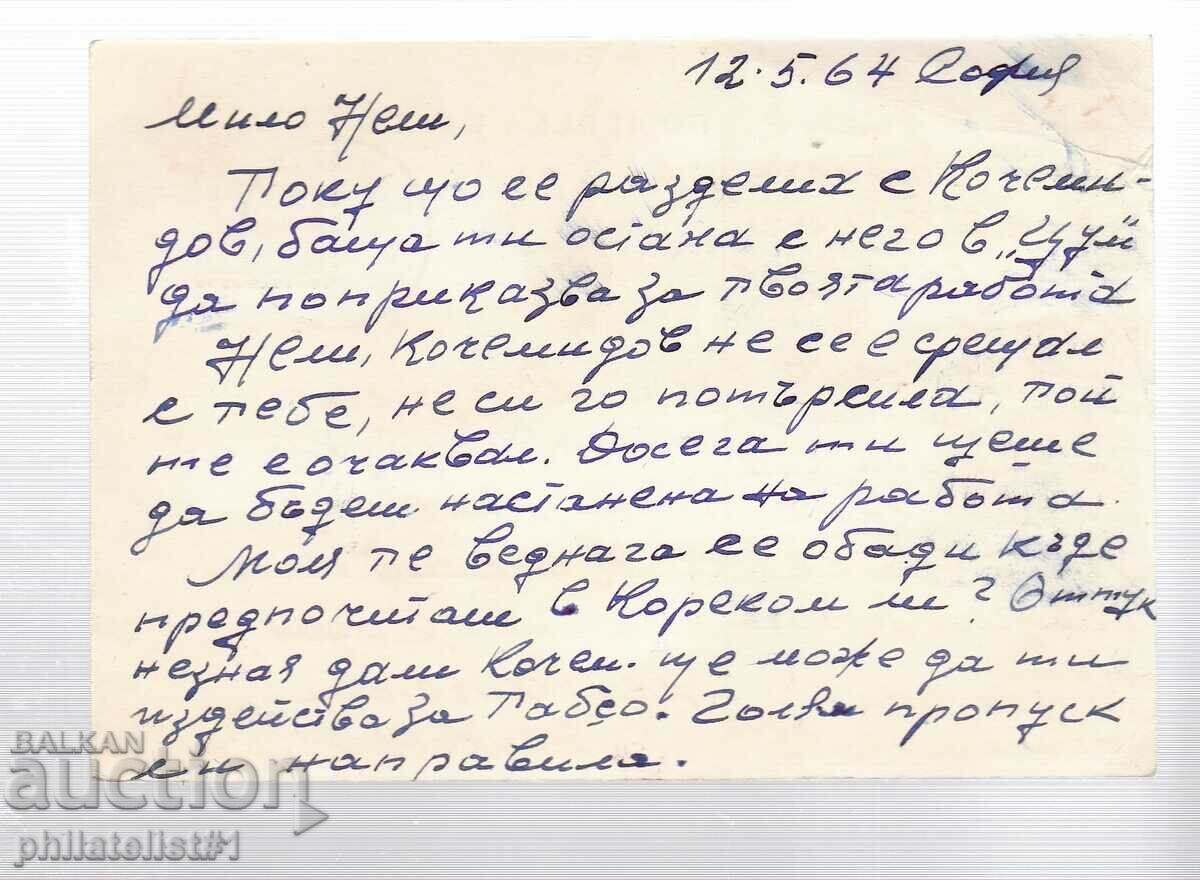 12.5.64 София
Мило Нели,
Току що се разделих с Кочеми-
дов, баща ти остана с него в „Цум"
да поприказва за твоята работа
Нели, Кочемидов не се е срещал
с тебе, не си го потърсила, той
те е очаквал. Досега ти щеше
да бъдеш настанена на работа.
Моля те веднага се обади къде
предпочиташ в Кореком ли? Оттук
незная дали Кочем. ще може да ти
издейства за Табсо. Голям пропуск
си направила.
BALKAN
auction
philatelist#1